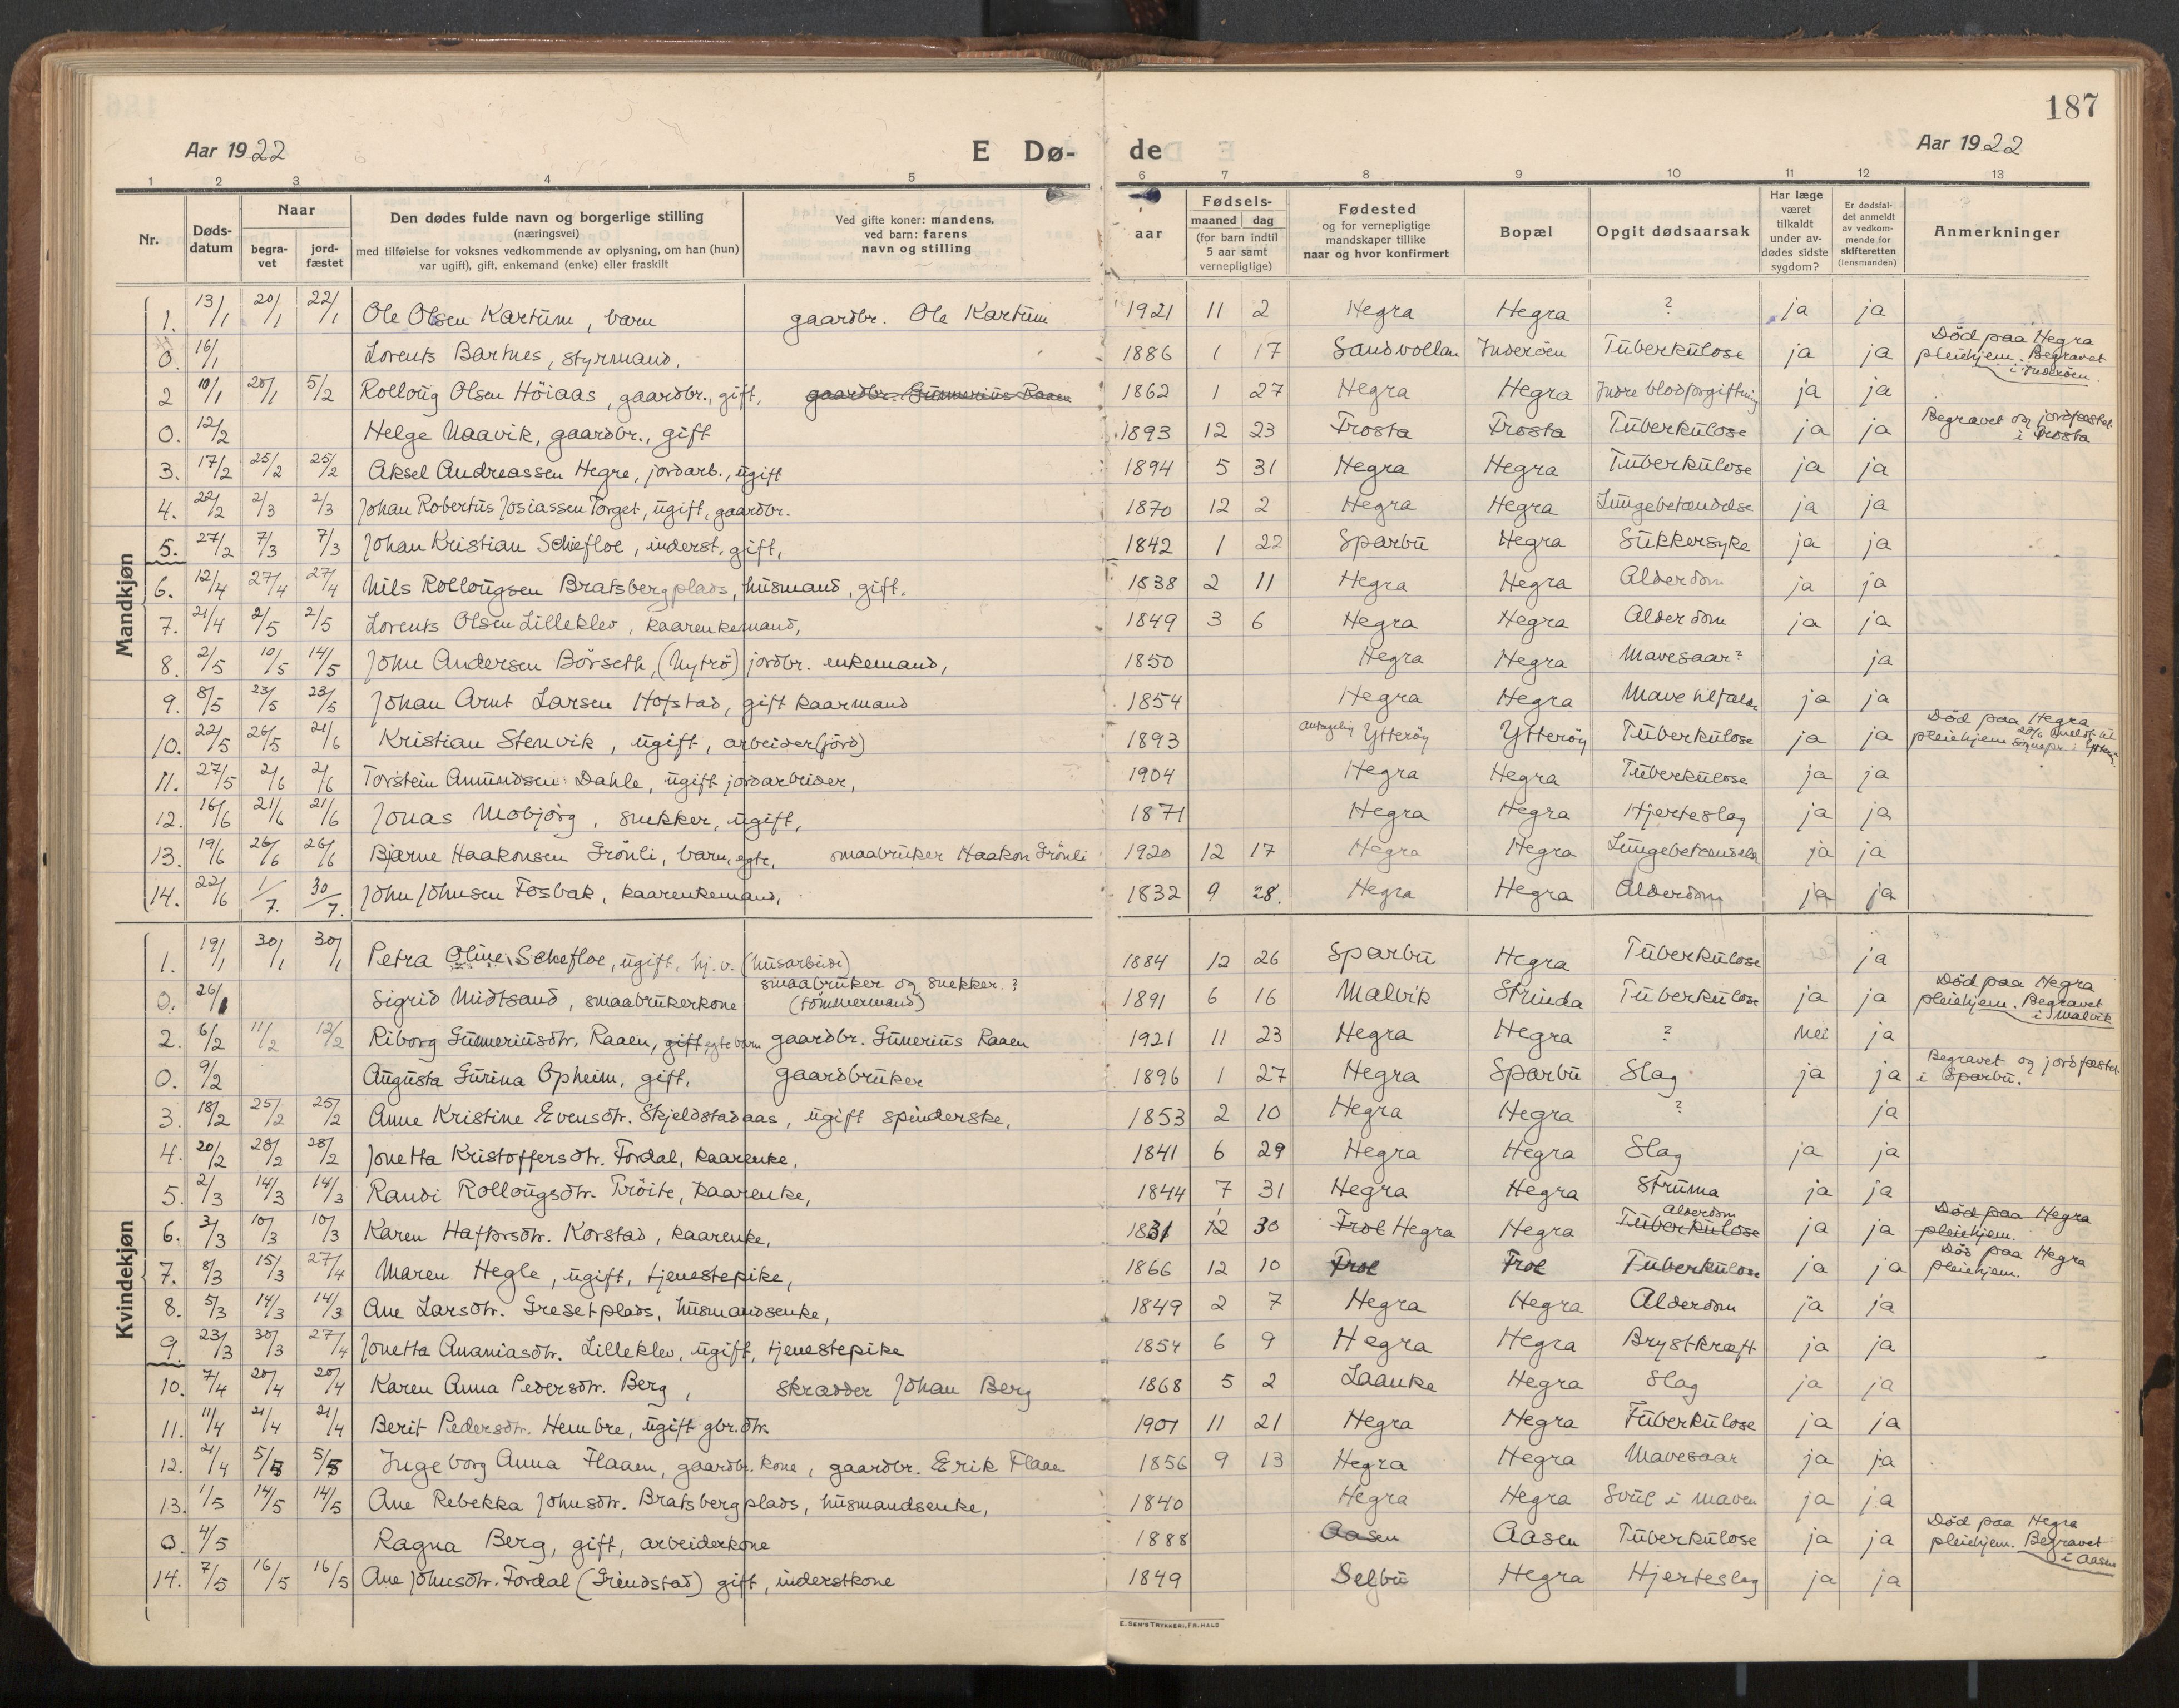 187
Aar 1922 E Dø- de Aar 1922
1 2 3 4 5 6 7 8 9 10 11 12 13
Nr. Døds-datum Naar begra-vet jord-fæstet Den dødes fulde navn og borgerlige stilling (næringsvei) med tilføielse for voksnes vedkommende av oplysning, om han (hun) var ugift), gift, enkemand (enke) eller fraskilt Ved gifte koner: mandens, ved barn: farens navn og stilling aar Fødsels- maaned dag (for barn indtil 5 aar samt vernepligtige) Fødested og for vernepligtige mandskaper tillike naar og hvor konfirmert Bopæl Opgit dødsaarsak Har læge været tilkaldt under av-dødes sidste sygdom? Er dødsfal-det anmeldt av vedkom-mende for skifteretten (lensmanden) Anmerkninger
Mandkjøn
1. 13/1 20/1 22/1 Ole Olsen Kartüm, barn gaardbr. Ole Kartüm 1921 11 2 Hegra Hegra ? ja ja
0. 16/1 Lorents Bartnes, styrmand. 1886 1 17 Sandvollan Inderöen Tüberkülose ja ja Död paa Hegra pleiehjem. Begravet i Inderöen.
2 10/1 20/1 5/2 Rolloüg Olsen Höiaas, gaardbr., gift, gaardbr. Günnerius Raaen 1862 1 27 Hegra Hegra Indre blodforgiftning ja ja
0. 12/2 Helge Naavik, gaardbr., gift 1893 12 23 Frosta Frosta Tüberkülose ja ja Begravet og jordfæstet i Frosta
3. 17/2 25/2 25/2 Aksel Andreassen Hegre, jordarb., ügift 1894 5 31 Hegra Hegra Tüberkülose ja ja
4. 22/2 2/3 2/3 Johan Robertüs Josiassen Torget, ügift, gaardbr. 1870 12 2 Hegra Hegra Lüngebetændelse ja ja
5. 27/2 7/3 7/3 Johan Kristian Schefloe, inderst, gift, 1842 1 22 Sparbü Hegra Sükkersyke ja ja
6. 12/4 27/4 27/4 Nils Rolloügsen Bratsbergplads, hüsmand, gift. 1838 2 11 Hegra Hegra Alderdom ja ja
7. 21/4 2/5 2/5 Lorents Olsen Lilleklev, kaarenkemand, 1849 3 6 Hegra Hegra Alderdom ja ja
8. 2/5 10/5 14/5 John Andersen Börseth, (Nytrö) jordbr. enkemand, 1850 Hegra Hegra Mavesaar? ja
9. 8/5 23/5 23/5 Johan Arnt Larsen Hofstad, gift kaarmand 1854 Hegra Hegra Mave ja ja
10. 22/5 26/5 21/6 Kristian Stenvik, ügift, arbeider (jord) 1893 antagelig Ytteröy Ytteröy Tüberkülose ja ja Död paa Hegra pleiehjem
11. 27/5 2/6 2/6 Torstein Amündsen Dahle, ügift jordarbeider, 1904 Hegra Hegra Tüberkülose ja ja
12. 16/6 21/6 21/6 Jonas Mobjörg, snekker, ügift, 1871 Hegra Hegra Hjerteslag ja ja
13. 19/6 26/6 26/6 Bjarne Haakonsen Grönli, barn, egte, smaabrüker Haakon Grönli 1920 12 17 Hegra Hegra Lüngebetændelse ja ja
14. 22/6 1/7. 30/7. John Johnsen Fosbak, kaarenkemand, 1832 9 28. Hegra Hegra Alderdom ja ja
Kvindekjøn
1. 19/1 30/1 30/1 Petra Oline Schefloe, ügift, hj. v. (hüsarbeide) 1884 12 26 Sparbü Hegra Tüberkülose ja
0. 26/1 Sigrid Midtsand, smaabrükerkone smaabrüker og snekker.? (tömmermand) 1891 6 16 Malvik Strinda Tüberkülose ja ja Död paa Hegra pleiehjem. Begravet i Malvik
2. 6/2 11/2 12/2 Riborg Günneriüsdtr. Raaen, gift, egte barn gaardbr. Günerius Raaen 1921 11 23 Hegra Hegra ? Nei ja
0. 9/2 Augüsta Gürina Opheim, gift, gaardbrüker 1896 1 27 Hegra Sparbü Slag ja ja Begravet og jordfæstet i Sparbü.
3. 18/2 25/2 25/2 Anne Kristine Evensdtr. Skjeldstadaas, ügift spinderske, 1853 2 10 Hegra Hegra ? ja
4. 20/2 28/2 28/2 Jonetta Kristoffersdtr. Fordal, kaarenke, 1841 6 29 Hegra Hegra Slag ja ja
5. 2/3 14/3 14/3 Randi Rolloügsdtr. Tröite, kaarenke, 1844 7 31 Hegra Hegra Strüma ja ja
6. 3/3 10/3 10/3 Karen Haftorsdtr. Korstad, kaarenke, 1831 12 30 Frol Hegra Hegra Tüberkülose Alderdom ja ja Död paa Hegra pleiehjem.
7. 8/3 15/3 27/4 Maren Hegle, ügift, tjenestepike, 1866 12 10 Frol Frol Tüberkülose ja ja Död paa Hegra pleiehjem.
8. 5/3 14/3 14/3 Ane Larsdtr. Gresetplads, hüsmandsenke, 1849 2 7 Hegra Hegra Alderdom ja ja
9. 23/3 30/3 27/4 Jonetta Ananiasdtr. Lilleklev, ügift, tjenestepike 1854 6 9 Hegra Hegra Brystkræft ja ja
10. 7/4 20/4 20/4 Karen Anna Pedersdtr. Berg, skrædder Johan Berg 1868 5 2 Laanke Hegra Slag ja ja
11. 11/4 21/4 21/4 Berit Pedersdtr. Hembre, ügift gbr.dtr. 1901 11 21 Hegra Hegra Tüberkülose ja ja
12. 21/4 5/5 5/5 Ingeborg Anna Flaaen, gaardbr. kone, gaardbr. Erik Flaaen 1856 9 13 Hegra Hegra Mavesaar ja ja
13. 1/5 14/5 14/5 Ane Rebekka Johnsdtr. Bratsbergplads, hüsmandsenke, 1840 Hegra Hegra Svül i maven ja ja
0. 4/5 Ragna Berg, gift, arbeiderkone 1888 Aasen Aasen Tüberkülose ja ja Död paa Hegra pleiehjem. Begravet i Aasen
14. 7/5 16/5 16/5 Ane Johnsdtr. Fordal (Grindstad) gift, inderstkone 1849 Selbü Hegra Hjerteslag ja ja
E. SEM'S TRYKKERI, FR.HALD